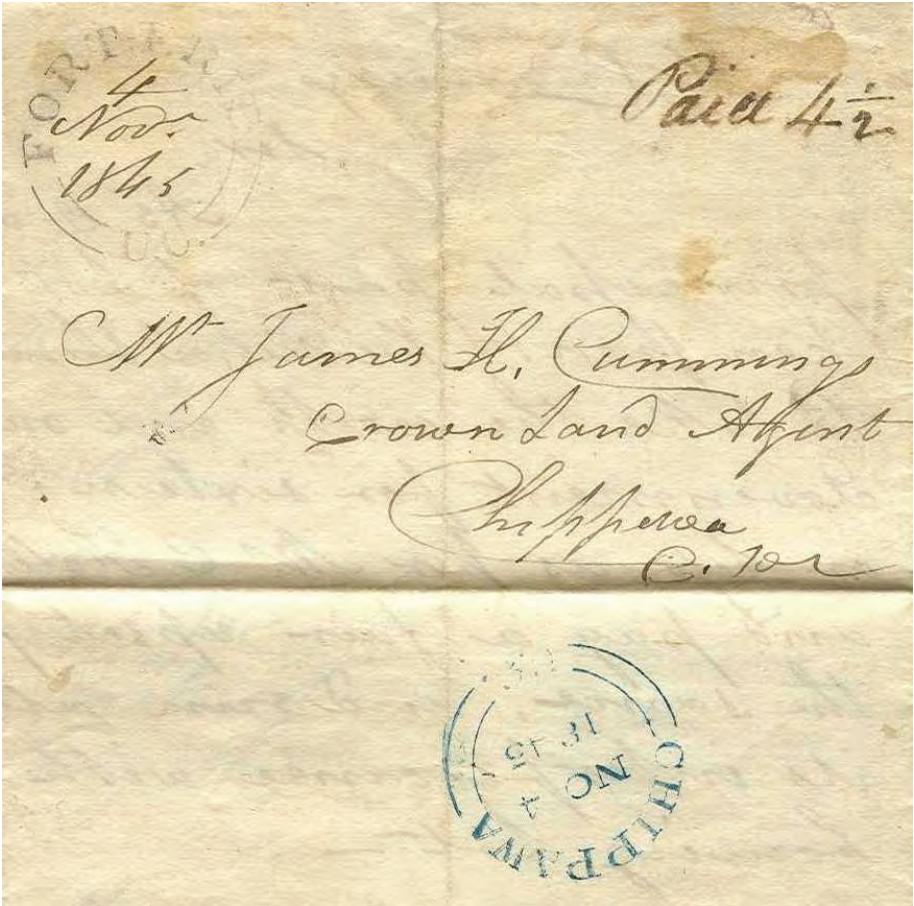 FORT ERIE
4
Novr
1845
U.C.
Paid 4 1/2
Mr James H. Cummings
Crown Land Agent
Chippewa
C. W
CHIPPAWA
NO 4
1845